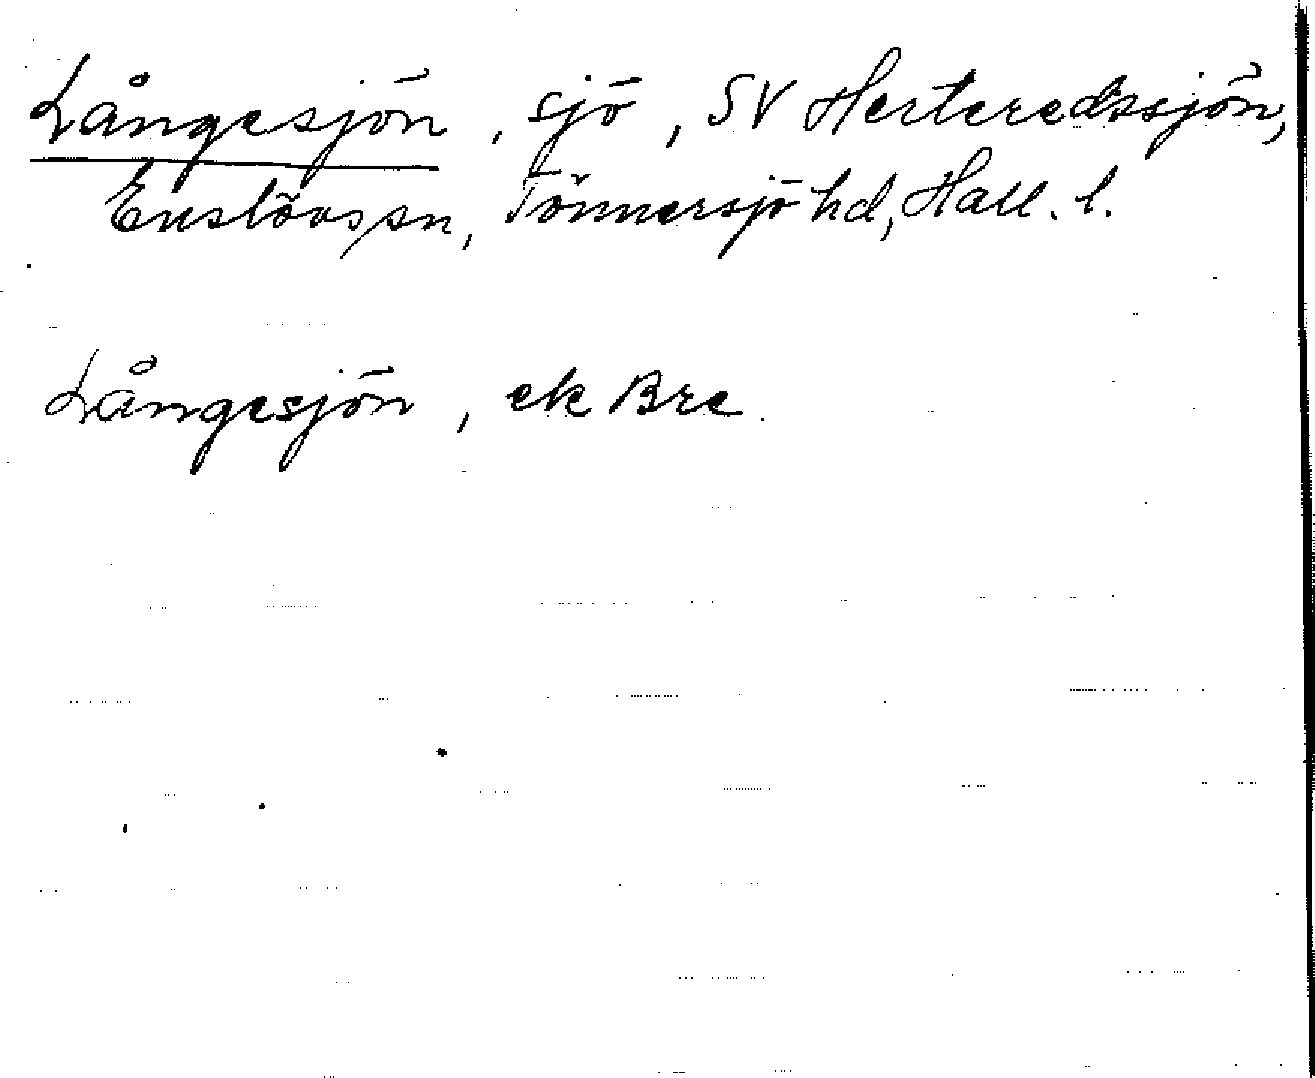 Långesjön, sjö, SV Herteredssjön,
Enslövs sn, Tönnersjö hd, Hall. l.
Långesjön, ek Bre.